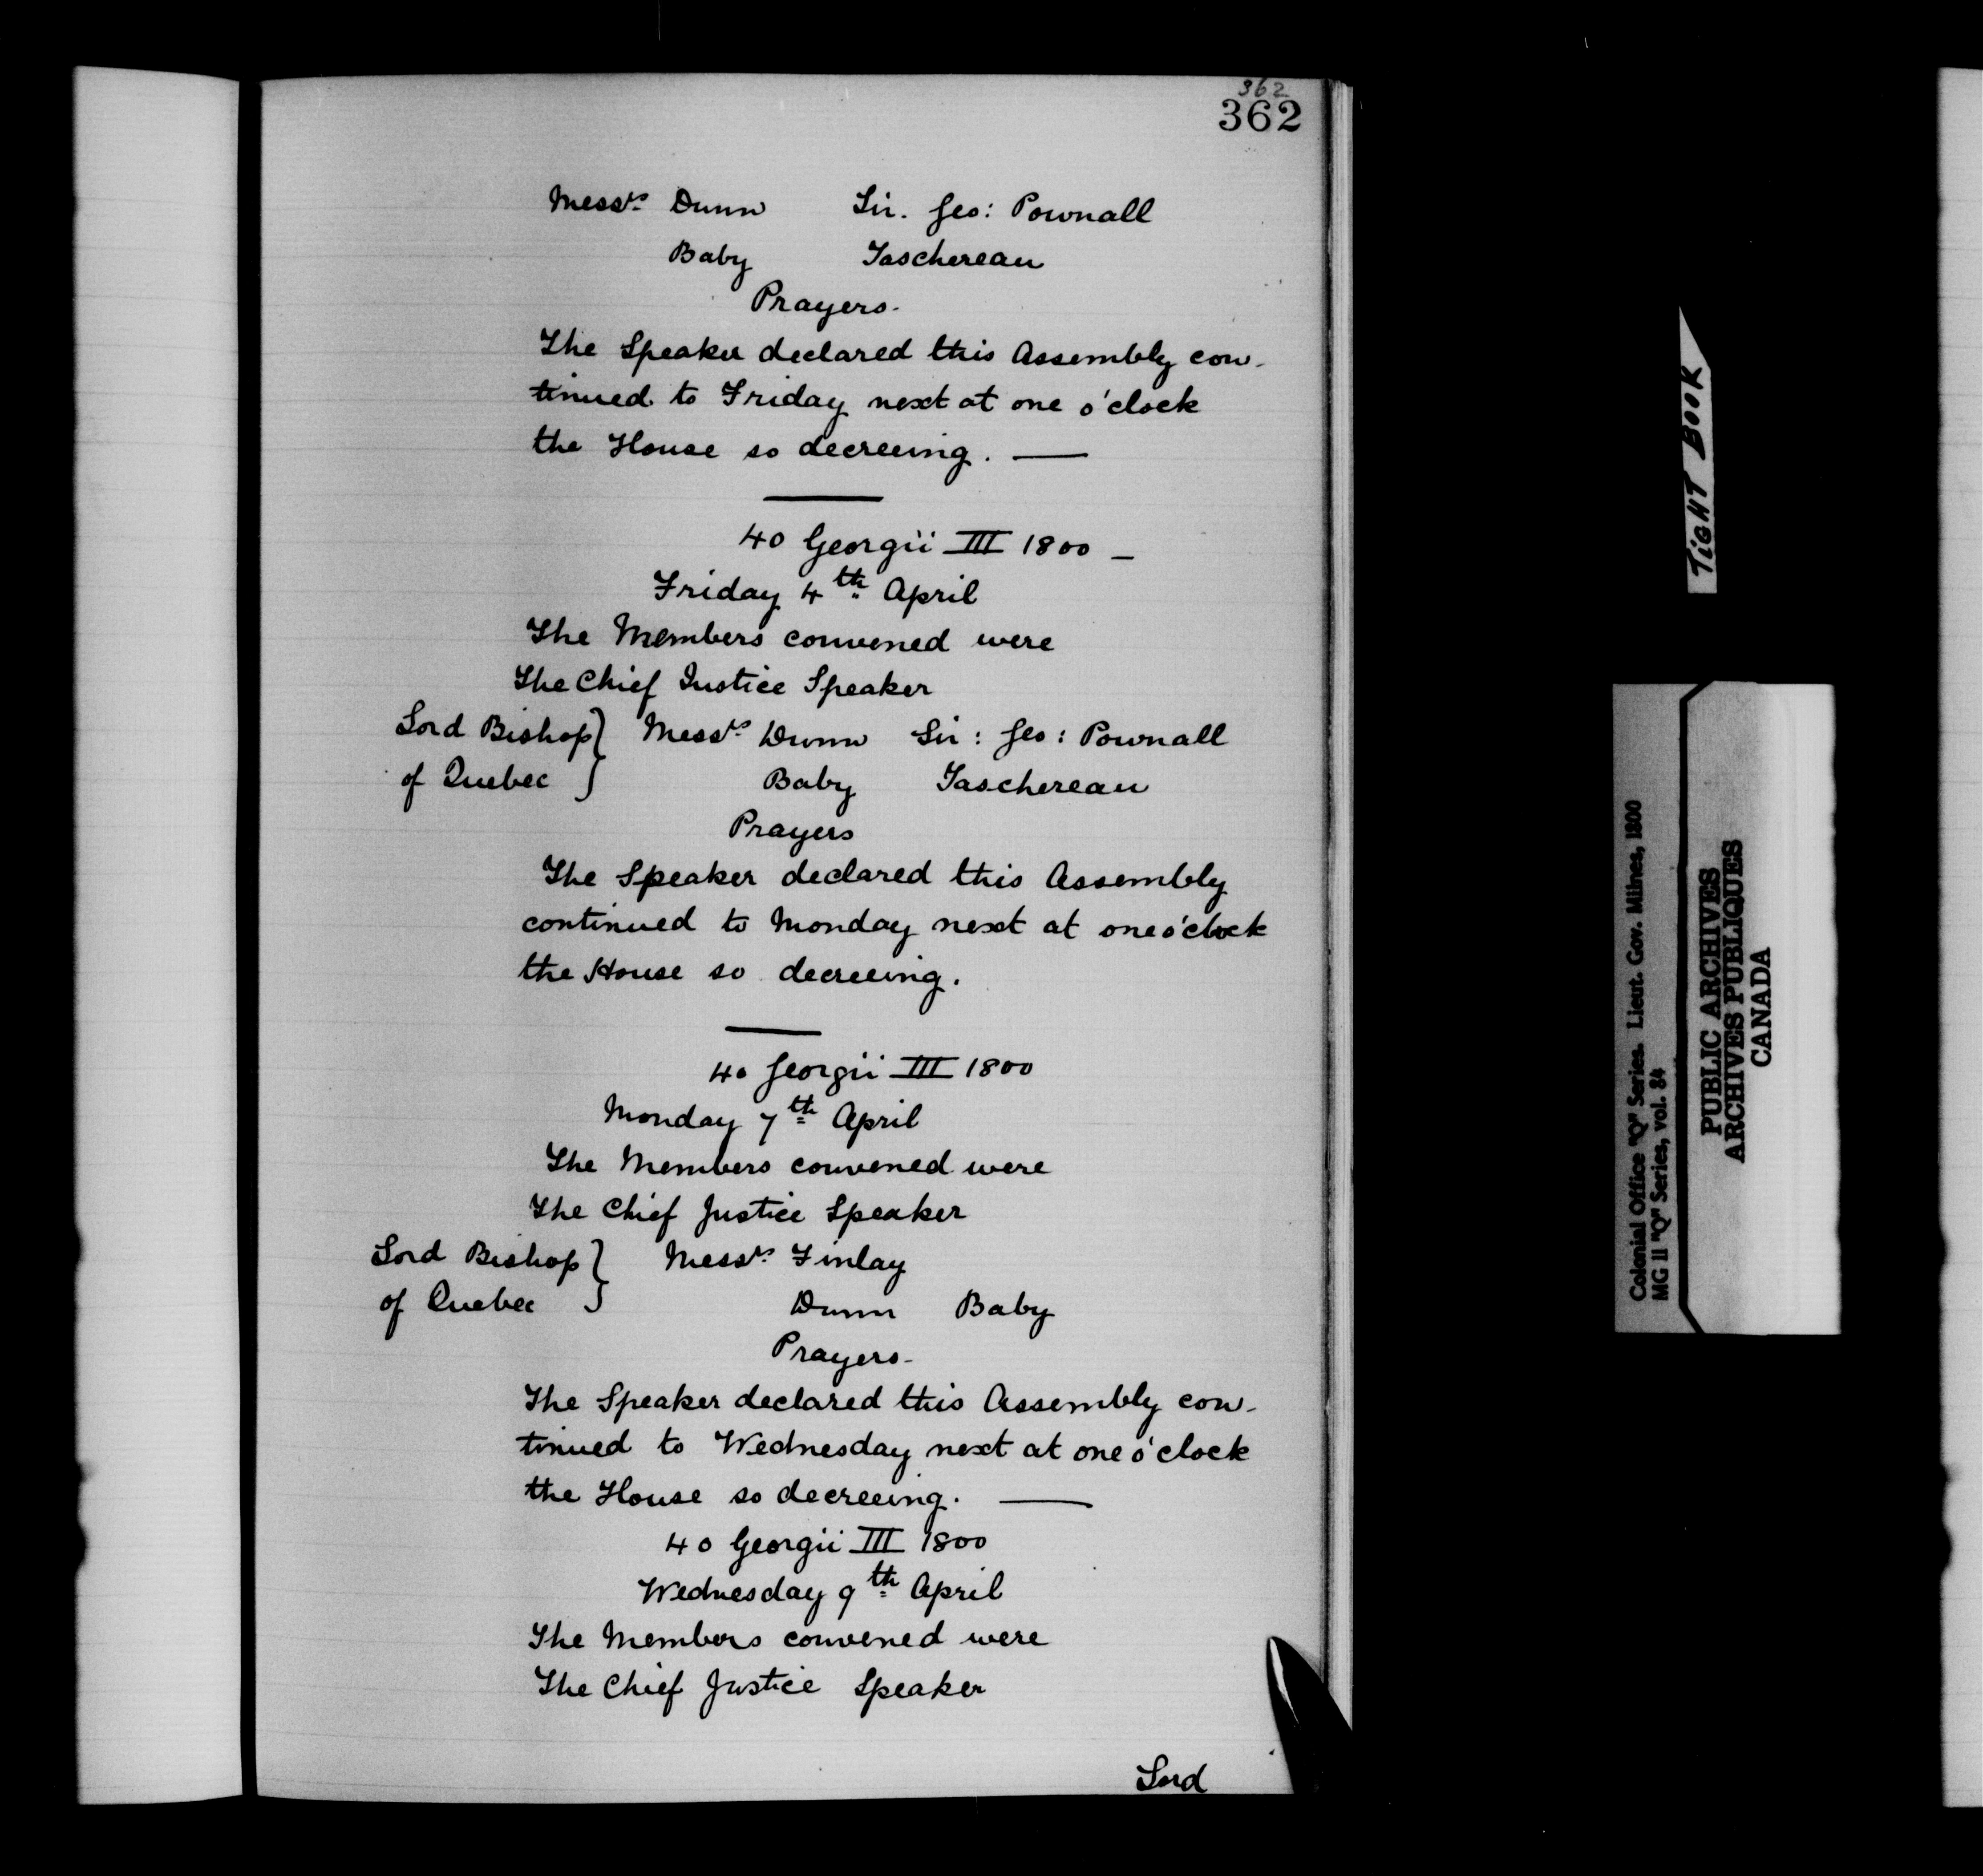 362
362
Mess.rs Dunn Sir. Geo: Pownall
Baby Taschereau
Prayers.
The Speaker declared this Assembly con-
tinued to Friday next at one o'clock
the House so decreeing. —
40 Georgii III 1800 —
Friday 4th April
The Members convened were
The Chief Justice Speaker
Lord Bishop } Mess.rs Dunn Sir: Geo: Pownall
of Quebec } Baby Taschereau
Prayers
The Speaker declared this Assembly
continued to Monday next at one o'clock
the House so decreeing.
40 Georgii III 1800
Monday 7th April
The Members convened were
The Chief Justice Speaker
Lord Bishop } Mess.rs Finlay
of Quebec } Dunn Baby
Prayers-
The Speaker declared this Assembly con-
tinued to Wednesday next at one o'clock
the House so decreeing. —
40 Georgii III 1800
Wednesday 9th April
The Members convened were
The Chief Justice Speaker
Lord
TIGHT BOOK
Colonial Office "Q" Series. Lieut. Gov. Milnes, 1800
MG 11 "Q" Series, vol. 84
PUBLIC ARCHIVES
ARCHIVES PUBLIQUES
CANADA